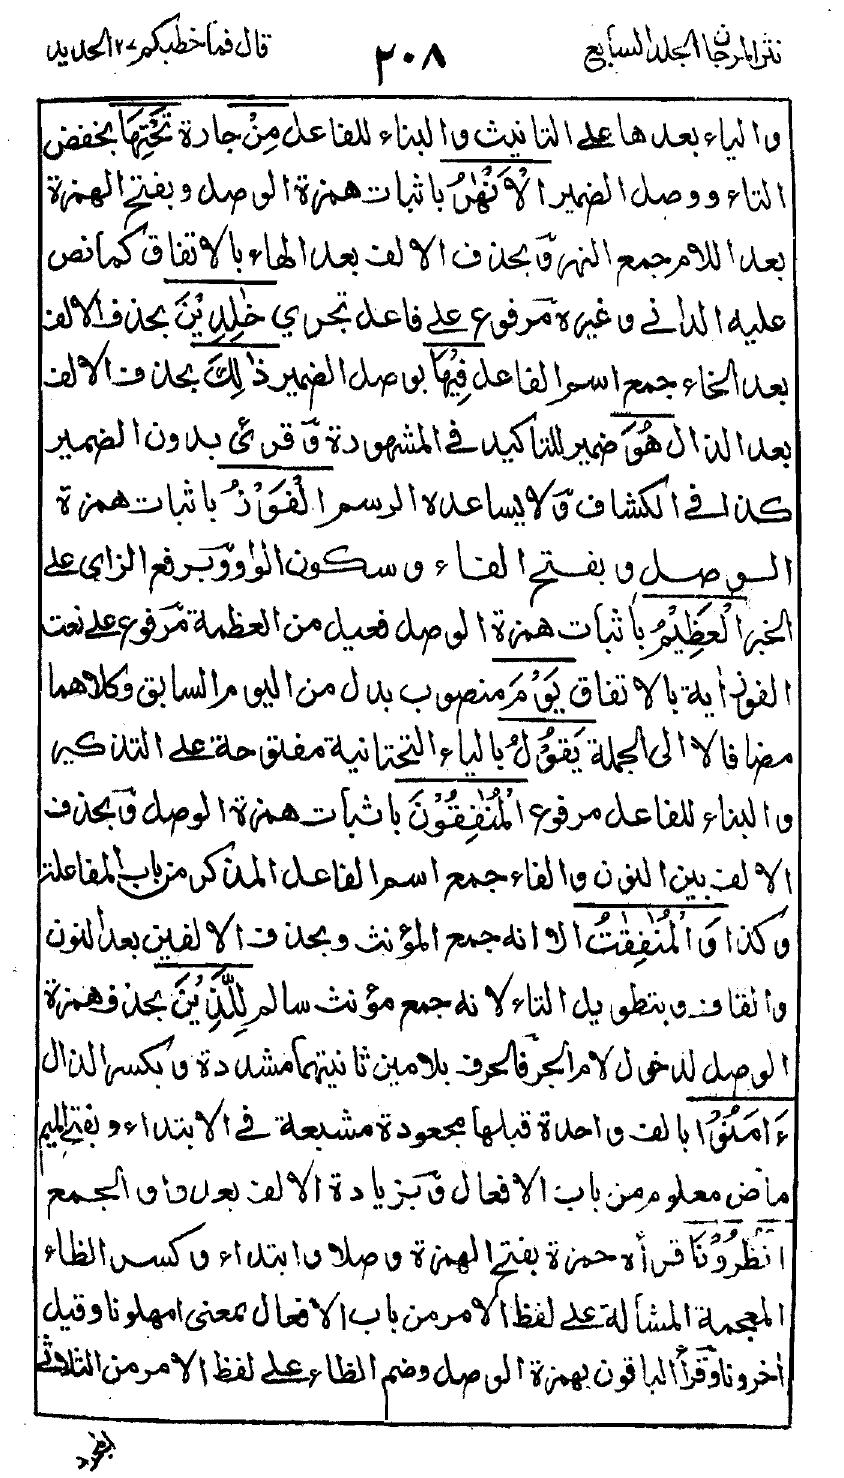 نثر المرجان الجلد السابع
٢٠٨
قال فما خطبكم ٢٧ الحديد
والياء بعدها على التانيث والبناء للفاعل مِنْ جارة تَحْتِهَا بخفض
التاء ووصل الضمير الْاَنْهٰرُ باثبات همزة الوصل وبفتح الهمزة
بعد اللام جمع النهر وبحذف الالف بعد الهاء بالاتفاق كما نص
عليه الداني وغيره مرفوع على فاعل تجري خٰلِدِيْنَ بحذف الالف
بعد الخاء جمع اسم الفاعل فِيْهَا بوصل الضمير ذٰلِكَ بحذف الالف
بعد الذال هُوَ ضمير للتاكيد في المشهودة وقرئ بدون الضمير
كذا في الكشاف ولا يساعده الرسم الْفَوْزُ باثبات همزة
الوصل وبفتح الفاء وسكون الواو وبرفع الزاي على
الخبر الْعَظِيْمُ باثبات همزة الوصل فعيل من العظمة مرفوع على نعت
الفوز اية بالاتفاق يَوْمَ منصوب بدل من اليوم السابق وكلاهما
مضافا لا الى الجملة يَقُوْلُ بالياء التحتانية مفتوحة على التذكير
والبناء للفاعل مرفوع الْمُنٰفِقُوْنَ باثبات همزة الوصل وبحذف
الالف بين النون والفاء جمع اسم الفاعل المذكر من باب المفاعلة
وكذا وَالْمُنٰفِقٰتُ الا انه جمع المؤنث وبحذف الالفين بعد النون
والقاف وبتطويل التاء لانه جمع مؤنث سالم لِلَّذِيْنَ بحذف همزة
الوصل لدخول لام الجر فالحرف بلامين ثانيتهما مشددة وبكسر الذال
ءَامَنُوْا بالف واحدة قبلها مجعودة مشبعة في الابتداء وبفتح الميم
ماض معلوم من باب الافعال وبزيادة الالف بعد واو الجمع
انْظُرُوْنَا قرأه حمزة بفتح الهمزة وصلا وابتداء وكسر الظاء
المعجمة المشالة على لفظ الامر من باب الافعال بمعنى امهلونا وقيل
أخرونا وقرأ الباقون بهمزة الوصل وضم الظاء على لفظ الامر من الثلاثي